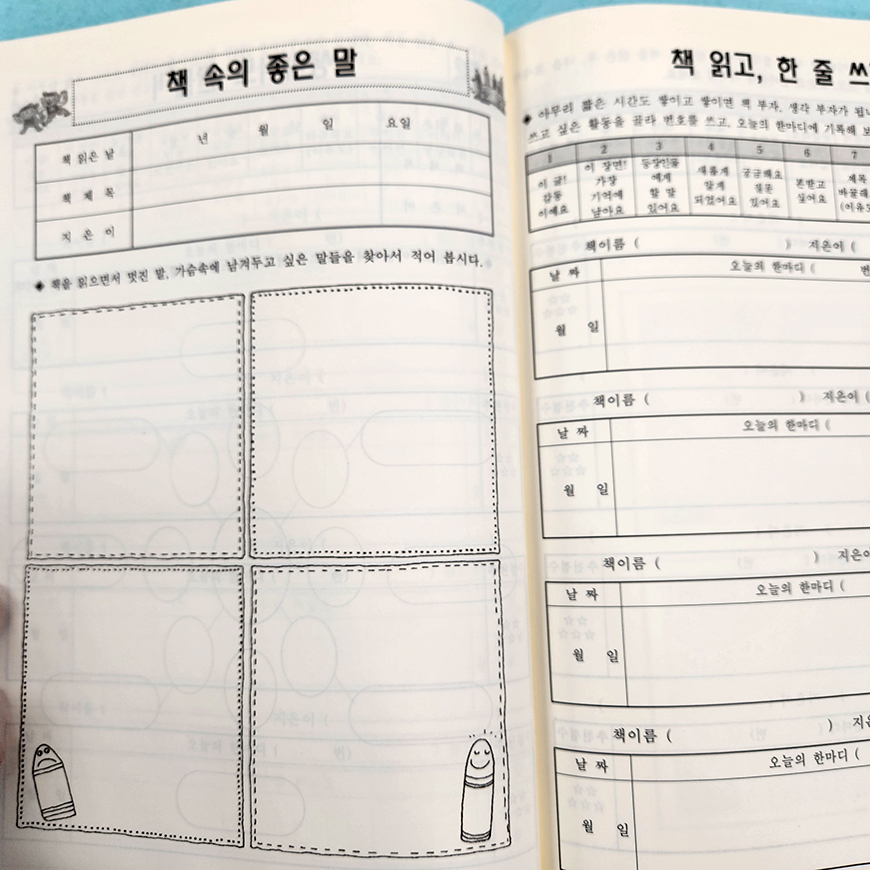 책 속의 좋은 말
책 읽은 날 년 월 일 요일
책 제 목
지 은 이
◆ 책을 읽으면서 멋진 말, 가슴속에 남겨두고 싶은 말들을 찾아서 적어 봅시다.
책 읽고, 한 줄 쓰
◆ 아무리 짧은 시간도 쌓이고 쌓이면 책 부자, 생각 부자가 됩니
쓰고 싶은 활동을 골라 번호를 쓰고, 오늘의 한마디에 기록해 보
1 2 3 4 5 6 7
이 글!
감동
이에요
이 장면!
가장
기억에
남아요
등장인물
에게
할 말
있어요
새롭게
알게
되었어요
궁금해요
질문
있어요
본받고
싶어요
제목
바꿀래
(이유도
책이름 ( ) 지은이 (
날 짜 오늘의 한마디 ( 번
월 일
책이름 ( ) 지은이 (
날 짜 오늘의 한마디 (
월 일
책이름 ( ) 지은이
날 짜 오늘의 한마디 (
월 일
책이름 ( ) 지은
날 짜 오늘의 한마디 (
월 일